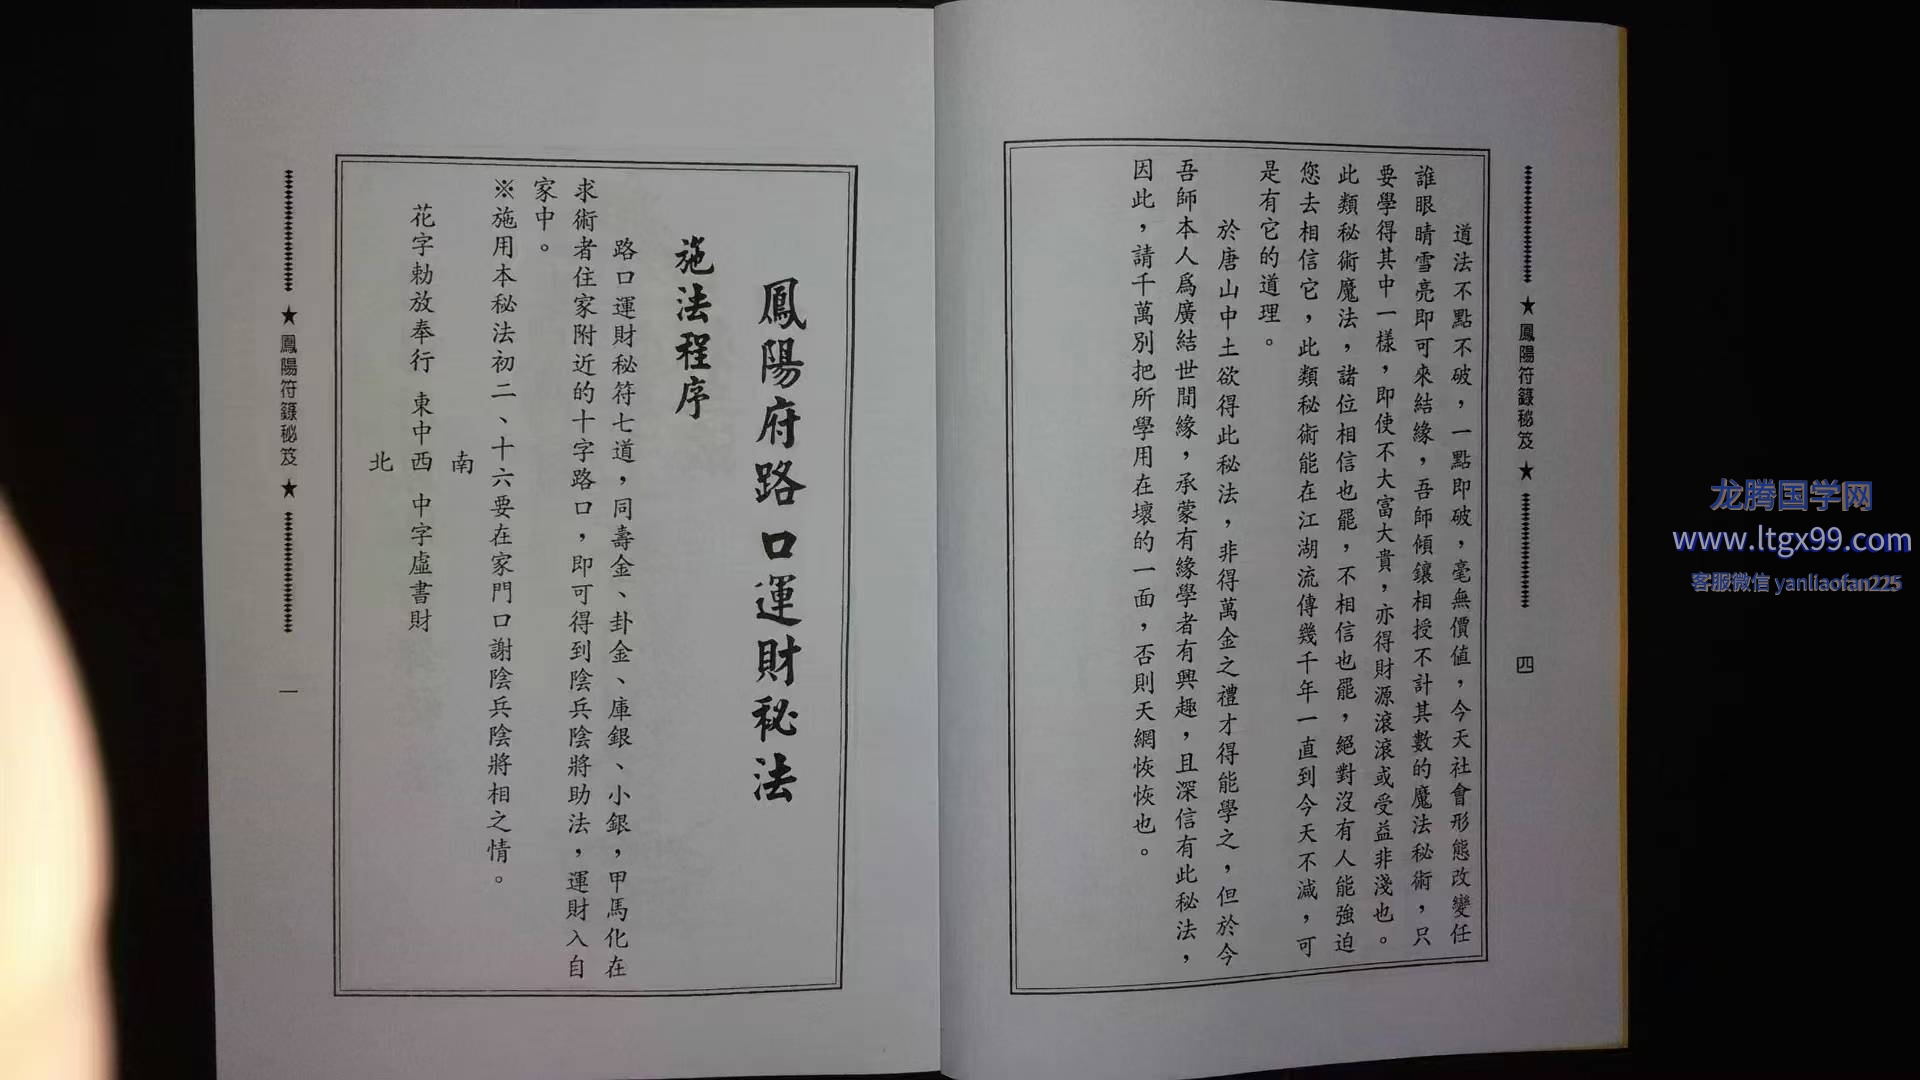 ★鳳陽符籙秘笈★
四
道法不點不破，一點即破，毫無價值，今天社會形態改變任
誰眼睛雪亮即可來結緣，吾師傾鑲相授不計其數的魔法秘術，只
要學得其中一樣，即使不大富大貴，亦得財源滾滾或受益非淺也。
此類秘術魔法，諸位相信也罷，不相信也罷，絕對沒有人能強迫
您去相信它，此類秘術能在江湖流傳幾千年一直到今天不滅，可
是有它的道理。
於唐山中土欲得此秘法，非得萬金之禮才得能學之，但於今
吾師本人爲廣結世間緣，承蒙有緣學者有興趣，且深信有此秘法，
因此，請千萬別把所學用在壞的一面，否則天網恢恢也。
鳳陽府路口運財秘法
施法程序
路口運財秘符七道，同壽金、卦金、庫銀、小銀，甲馬化在
求術者住家附近的十字路口，即可得到陰兵陰將助法，運財入自
家中。
※施用本秘法初二、十六要在家門口謝陰兵陰將相之情。
南
花字勅放奉行 東中西 中字虛書財
北
★鳳陽符籙秘笈★
一
龙腾国学网
www.ltgx99.com
客服微信 yanliaofan225